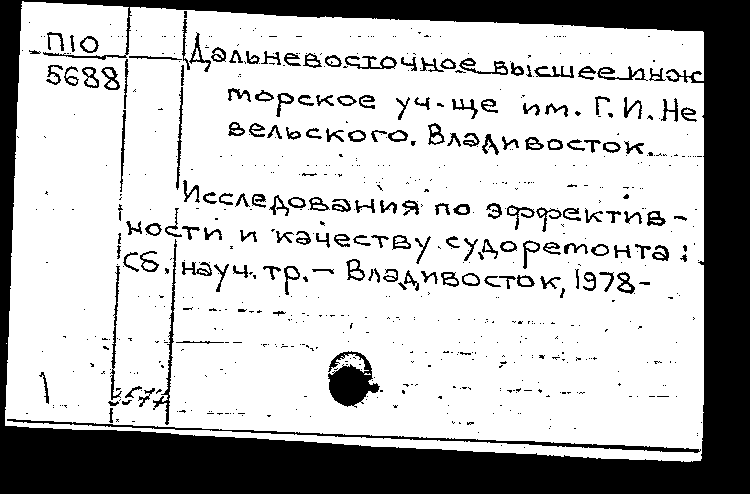 П10
5688
Дальневосточное высшее инж
морское уч-ще им. Г.И.Не
вельского. Владивосток.
Исследования по эффектив-
ности и качеству судоремонта:
Сб. науч. тр. – Владивосток, 1978-
3577